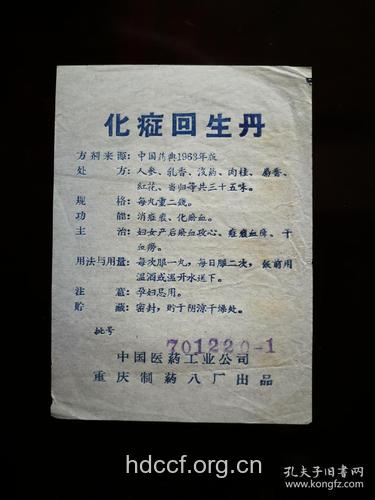 化症回生丹
方剂来源：中国药典1963年版
处方：人参、乳香、没药、肉桂、麝香、
红花、当归等共三十五味。
规格：每丸重二钱。
功能：消症瘕、化瘀血。
主治：妇女产后瘀血攻心、症瘕血痹、干
血痨。
用法与用量：每次服一丸，每日服二次，饭前用
温酒或温开水送下。
注意：孕妇忌用。
贮藏：密封，贮于阴凉干燥处。
批号
701220-1
中国医药工业公司
重庆制药八厂出品
hdccf.org.cn
孔夫子旧书网
www.kongfz.com